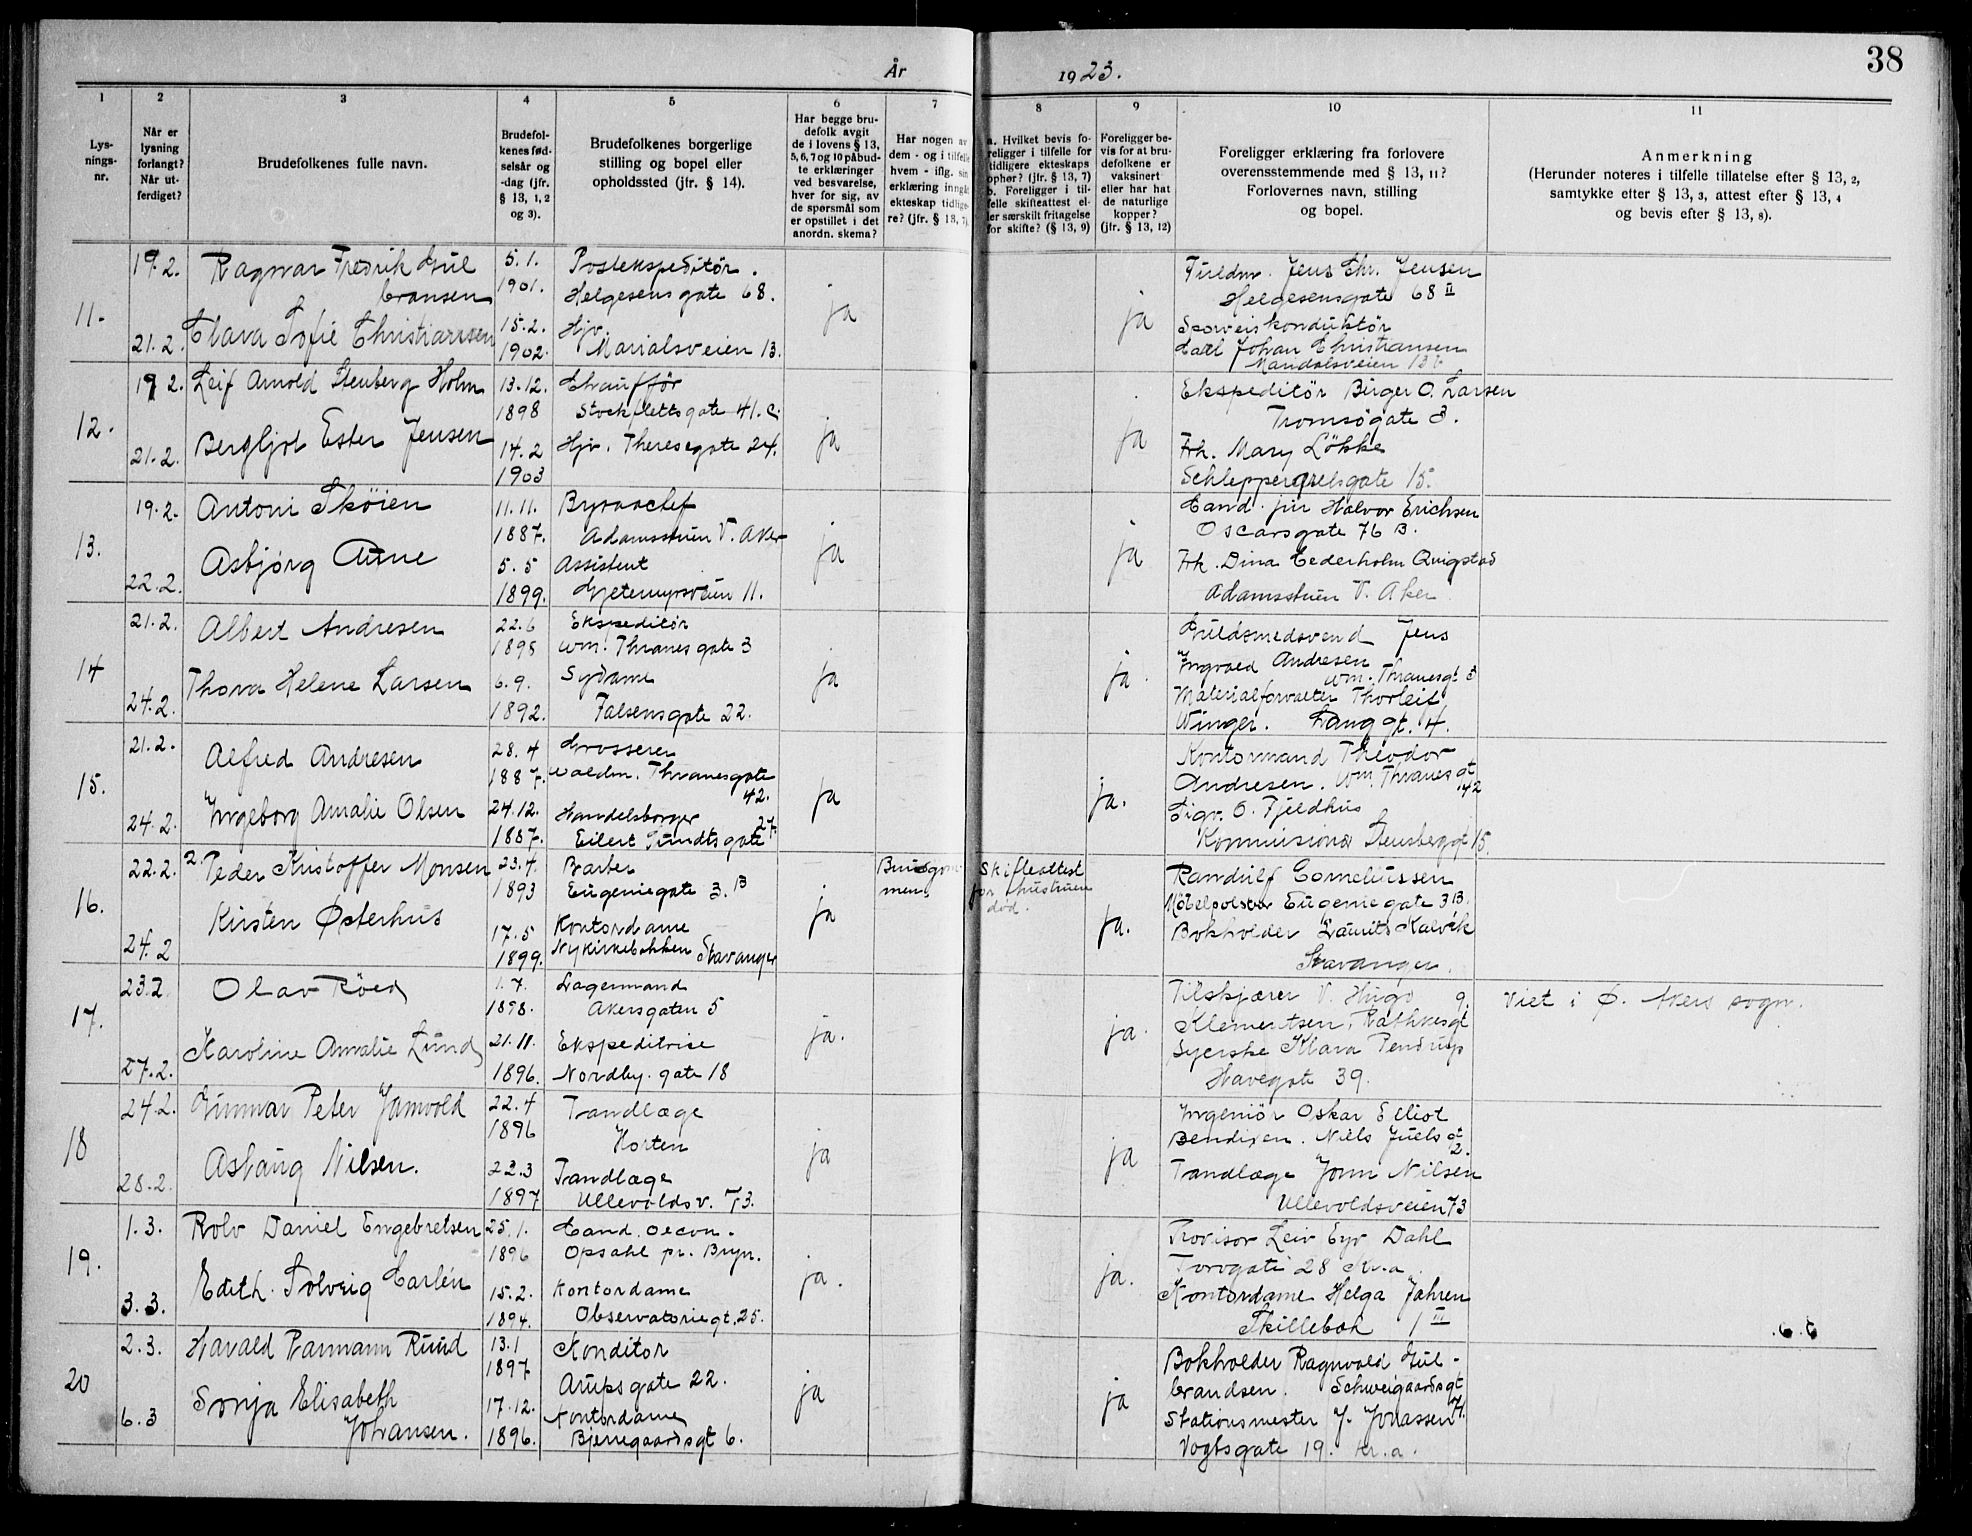 38
År 1923.
1 2 3 4 5 6 7 8 9 10 11
Lys-
nings-
nr.
Når er
lysning
forlangt?
Når ut-
ferdiget?
Brudefolkenes fulle navn.
Brudefol-
kenes fød-
selsår og
-dag (jfr.
§ 13, 1, 2
og 3).
Brudefolkenes borgerlige
stilling og bopel eller
opholdssted (jfr. § 14).
Har begge bru-
defolk avgit
de i lovens § 13,
5, 6, 7 og 10 påbud-
te erklæringer
ved besvarelse,
hver for sig, av
de spørsmål som
er opstillet i det
anordn. skema?
Har nogen av
dem - og i tilfelle
hvem - iflg. sin
erklæring inngåt
ekteskap tidlige-
re? (jfr. § 13, 7)
a. Hvilket bevis fo-
religger i tilfelle for
tidligere ekteskaps
opher? (jfr. § 13, 7)
b. Foreligger i til-
felle skifteattest el-
ler særskilt fritagelse
for skifte? (§ 13, 9)
Foreligger be-
vis for at bru-
defolkene er
vaksinert
eller har hat
de naturlige
kopper?
(jfr. § 13, 12)
Foreligger erklæring fra forlovere
overensstemmende med § 13, 11?
Forlovernes navn, stilling
og bopel.
Anmerkning
(Herunder noteres i tilfelle tillatelse efter § 13, 2,
samtykke efter § 13, 3, attest efter § 13, 4
og bevis efter § 13, 8).
11.
19.2.
21.2.
Ragnar Fredrik Gul
bransen
Clara Sofie Christiansen
5.1.
1901.
15.2.
1902.
Postekspeditör.
Helgesens gate 68.
Hjv.
Marialsveien 13.
ja
ja
Fuldm. Jens Chr. Jensen
Helgesensgate 68 II
Sporveiskonduktör
Carl Johan Christiansen
Mandalsveien 13
12.
19 2.
21.2.
Leif Arnold Stenberg Holm
Bergljot Ester Jensen
13.12.
1898
14.2
1903
Chaufför
Stockflettsgate 41.c.
Hjv. Theresegate 24.
ja
ja
Ekspeditör Birger O. Larsen
Tromsögate 3.
Frk. Mary Lökke
Schleppegrelsgate 15.
13.
19.2.
22.2.
Antoni Sköien
Asbjørg Aune
11.11.
1887.
5.5
1899.
Byraachef
Adamsstuen V. Aker
Assistent
Gjetemyrsveien 11.
ja
ja
Cand. jur Halvor Erichsen
Oscarsgate 76 B.
Frk. Dina Cederholm Quigstad
Adamsstuen V. Aker
14
21.2.
24.2.
Albert Andresen
Thora Helene Larsen
22.6
1895
6.9.
1892.
Ekspeditör
Wm. Thranes gate 3
Sydame
Falsensgate 22.
ja
ja.
Guldsmedsvend Jens
Ingvald Andresen
Wm. Thranesgt 3
Materialforvalter Thorleif
Winger. Langgt. 4.
15.
21.2.
24.2.
Alfred Andresen
Ingeborg Amalie Olsen
28.4
1887.
24.12.
1887.
Grosserer
Waldm. Thranesgate
42.
Handelsborger
27.
Eilert Sundtsgate
ja
ja.
Kontormand Theodor
Andresen. Wm. Thranes gt
42
Sigv. O. Fjeldhus
Kommisionær Stensberggt 15
16.
22.2.
24.2
2. Peder Kristoffer Monsen
Kirsten Østerhus
23.4.
1893
17.5
1899.
Barber
Eugeniegate 3.B
Kontordame
Nykirkebakken Stavanger
ja
Brudgom-
men
Skifteattest
for hustruen
död.
ja.
Randulf Corneliussen
Möbelpolstrer Eugenie gate 3 B.
Bokholder Laurits Kalvik
Stavanger.
17.
23.2.
27.2.
Olav Röed
Karoline Amalie Lund
1.7.
1898.
21.11.
1896.
Lagermand
Akersgaten 5
Ekspeditrise
Nordby. gate 18
ja.
ja.
Tilskjærer V. Hugo
Klementsen, Rathkesgt 9.
Syerske Klara Pendrup
Havegate 39.
Viet i Ø. Akers sogn.
18
24.2.
28.2.
Gunnar Peter Jamvold
Aslaug Nilsen.
22.4
1896
22.3
1897
Tandlæge
Horten
Tandlæge
Ullevoldsv. 73.
ja
ja
Ingeniör Oskar Elliot
Bendixen. Niels Juels gt
2.
Tandlæge Jonn Nilsen
Ullevoldsveien 73
19.
1.3.
3.3.
Rolv Daniel Engebretsen
Edith Solveig Carlén
25.1.
1896
15.2.
1894.
Cand. oecon.
Opsahl pr. Bryn.
Kontordame
Observatoriegt. 25.
ja.
ja.
Provisor Leiv Eyv Dahl
Torvgate 28 Kr.a.
Kontordame Helga Jahren
Skillebæk 1 III
6.6.
20
2.3.
6.3
Harald Ramann Ruud
Sonja Elisabeth
Johansen.
13.1
1897
17.12.
1896.
Konditor
Arupsgate 22.
Kontordame
Bjerregaardsgt 6.
ja
ja
Bokholder Ragnvald Gul-
brandsen. Schweigaardsgt
Stationsmester J. Jonassen
Vogtsgate 19. Kr.a.